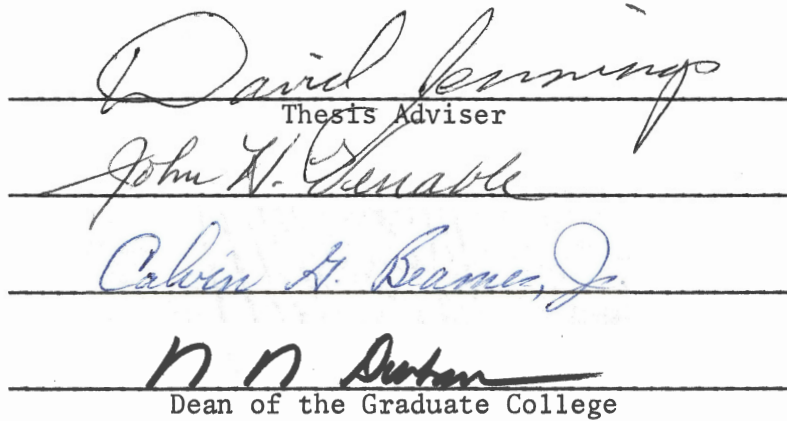 David Jennings
Thesis Adviser
John H. Venable
Calvin G. Beames, Jr.
N N Durham
Dean of the Graduate College